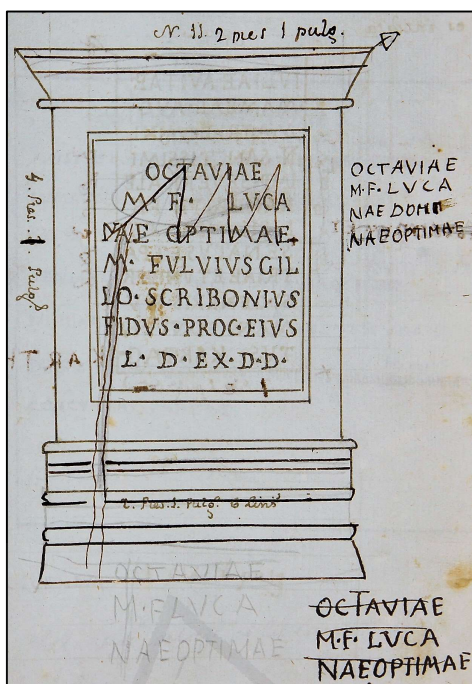 N. 11. 2 pies 1 pulg.
OCTAVIAE
M · F · LVCA
NAE OPTIMAE
M · FVLVIVS GIL
LO · SCRIBONIVS
FIDVS · PROC · EIVS
L · D · EX · D · D ·
4. Pies. 1. Pulg.s
OCTAVIAE
M · F · LVCA
NAE DOMI
NAEOPTIMAE
2. Pies. 1. Pulg. 6 lins
OCTAVIAE
M · F LVCA
NAEOPTIMAE
OCTAVIAE
M · F · LVCA
NAEOPTIMAE